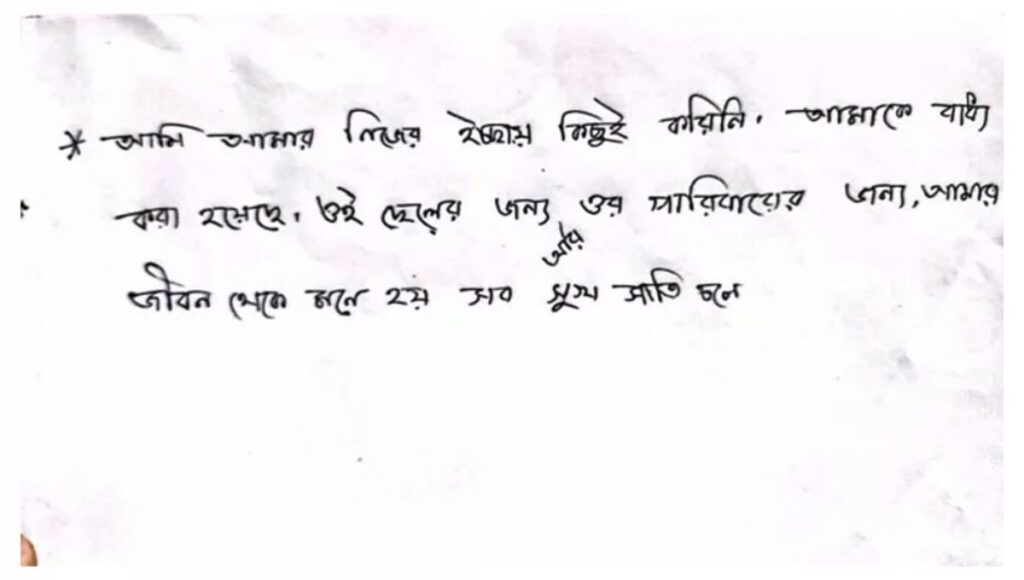 * আমি আমার নিজের ইচ্ছায় কিছুই করিনি. আমাকে বাধ্য
করা হয়েছে. ওই ছেলের জন্য ওর পারিবারের জন্য, আমার
আর
জীবন থেকে মনে হয় সব সুখ সান্তি চলে